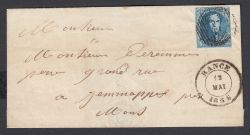 Monsieur
Monsieur Derenne
pour grand rue
à Jemmappes près
Mons
RANCE
12
MAI